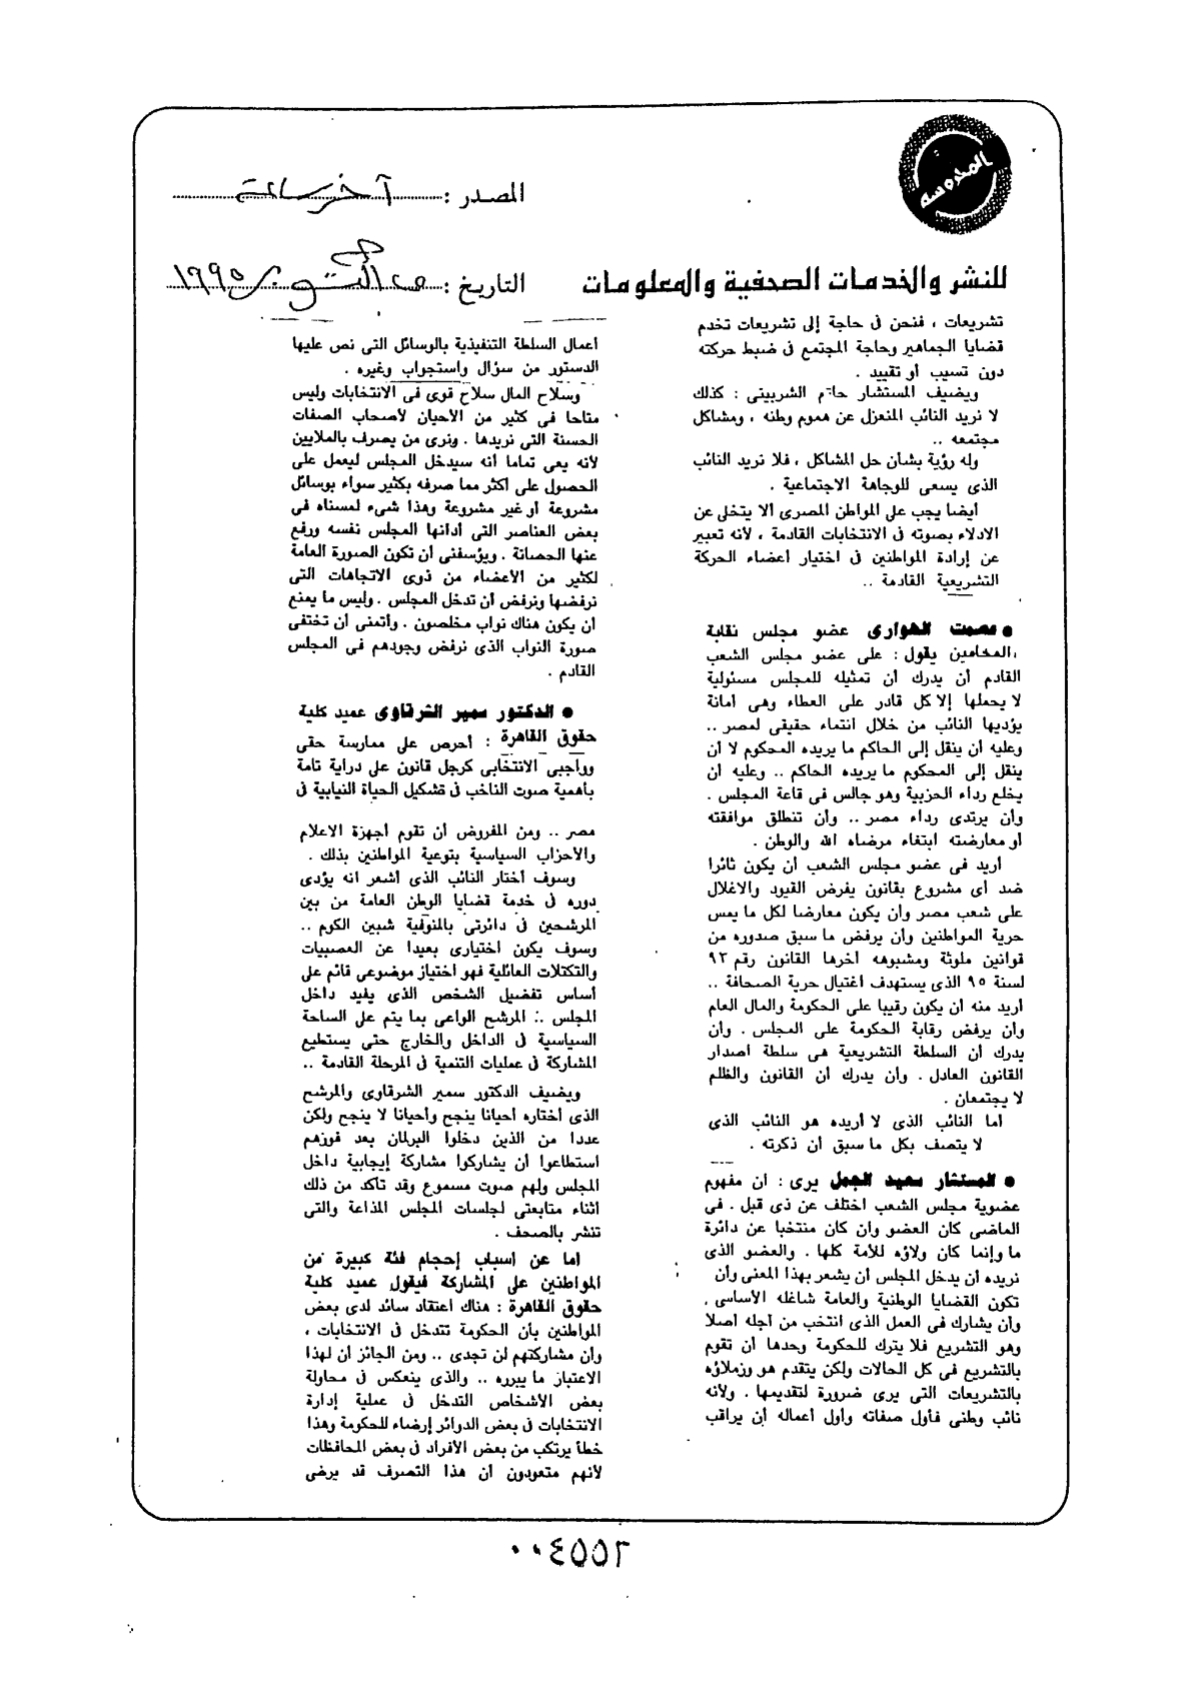 المحروسة
المصدر : آخر ساعة
للنشر والخدمات الصحفية والمعلومات
التاريخ : أكتوبر ١٩٩٥
تشريعات ، فنحن فى حاجة إلى تشريعات تخدم
قضايا الجماهير وحاجة المجتمع فى ضبط حركته
دون تسيب أو تقييد .
ويضيف المستشار حاتم الشربينى : كذلك
لا نريد النائب المنعزل عن هموم وطنه ، ومشاكل
مجتمعه ..
وله رؤية بشأن حل المشاكل ، فلا نريد النائب
الذى يسعى للوجاهة الاجتماعية .
أيضا يجب على المواطن المصرى ألا يتخلى عن
الادلاء بصوته فى الانتخابات القادمة ، لأنه تعبير
عن إرادة المواطنين فى اختيار أعضاء الحركة
التشريعية القادمة ..
● عصمت الهوارى عضو مجلس نقابة
المحامين يقول : على عضو مجلس الشعب
القادم أن يدرك أن تمثيله للمجلس مسئولية
لا يحملها إلا كل قادر على العطاء وهى أمانة
يؤديها النائب من خلال انتماء حقيقى لمصر ..
وعليه أن ينقل إلى الحاكم ما يريده المحكوم لا أن
ينقل إلى المحكوم ما يريده الحاكم .. وعليه أن
يخلع رداء الحزبية وهو جالس فى قاعة المجلس .
وأن يرتدى رداء مصر .. وأن تنطلق موافقته
أو معارضته ابتغاء مرضاه الله والوطن .
أريد فى عضو مجلس الشعب أن يكون ثائرا
ضد أى مشروع بقانون يفرض القيود والاغلال
على شعب مصر وأن يكون معارضا لكل ما يمس
حرية المواطنين وأن يرفض ما سبق صدوره من
قوانين ملوثة ومشبوهه آخرها القانون رقم ٩٣
لسنة ٩٥ الذى يستهدف اغتيال حرية الصحافة ..
أريد منه أن يكون رقيبا على الحكومة والمال العام
وأن يرفض رقابة الحكومة على المجلس . وأن
يدرك أن السلطة التشريعية هى سلطة اصدار
القانون العادل . وأن يدرك أن القانون والظلم
لا يجتمعان .
أما النائب الذى لا أريده هو النائب الذى
لا يتصف بكل ما سبق أن ذكرته .
● المستشار سعيد الجمل يرى : ان مفهوم
عضوية مجلس الشعب اختلف عن ذى قبل . فى
الماضى كان العضو وان كان منتخبا عن دائرة
ما وإنما كان ولاؤه للأمة كلها . والعضو الذى
نريده أن يدخل المجلس أن يشعر بهذا المعنى وأن
تكون القضايا الوطنية والعامة شاغله الأساسى .
وأن يشارك فى العمل الذى انتخب من أجله أصلا
وهو التشريع فلا يترك للحكومة وحدها أن تقوم
بالتشريع فى كل الحالات ولكن يتقدم هو وزملاؤه
بالتشريعات التى يرى ضرورة لتقديمها . ولأنه
نائب وطنى فأول صفاته وأول أعماله أن يراقب
أعمال السلطة التنفيذية بالوسائل التى نص عليها
الدستور من سؤال واستجواب وغيره .
وسلاح المال سلاح قوى فى الانتخابات وليس
متاحا فى كثير من الأحيان لأصحاب الصفات
الحسنة التى نريدها . ونرى من يصرف بالملايين
لأنه يعى تماما أنه سيدخل المجلس ليعمل على
الحصول على أكثر مما صرفه بكثير سواء بوسائل
مشروعة أو غير مشروعة وهذا شىء لمسناه فى
بعض العناصر التى أدانها المجلس نفسه ورفع
عنها الحصانة . ويؤسفنى أن تكون الصورة العامة
لكثير من الأعضاء من ذوى الاتجاهات التى
نرفضها ونرفض أن تدخل المجلس . وليس ما يمنع
أن يكون هناك نواب مخلصون . وأتمنى أن تختفى
صورة النواب الذى نرفض وجودهم فى المجلس
القادم .
● الدكتور سمير الشرقاوى عميد كلية
حقوق القاهرة : أحرص على ممارسة حقى
وواجبى الانتخابى كرجل قانون على دراية تامة
بأهمية صوت الناخب فى تشكيل الحياة النيابية فى
مصر .. ومن المفروض أن تقوم أجهزة الاعلام
والأحزاب السياسية بتوعية المواطنين بذلك .
وسوف أختار النائب الذى أشعر انه يؤدى
دوره فى خدمة قضايا الوطن العامة من بين
المرشحين فى دائرتى بالمنوفية شبين الكوم ..
وسوف يكون اختيارى بعيدا عن العصبيات
والتكتلات العائلية فهو اختيار موضوعى قائم على
أساس تفضيل الشخص الذى يفيد داخل
المجلس .. المرشح الواعى بما يتم على الساحة
السياسية فى الداخل والخارج حتى يستطيع
المشاركة فى عمليات التنمية فى المرحلة القادمة ..
ويضيف الدكتور سمير الشرقاوى والمرشح
الذى أختاره أحيانا ينجح وأحيانا لا ينجح ولكن
عددا من الذين دخلوا البرلمان بعد فوزهم
استطاعوا أن يشاركوا مشاركة إيجابية داخل
المجلس ولهم صوت مسموع وقد تأكد من ذلك
اثناء متابعتى لجلسات المجلس المذاعة والتى
تنشر بالصحف .
اما عن أسباب إحجام فئة كبيرة من
المواطنين على المشاركة فيقول عميد كلية
حقوق القاهرة : هناك اعتقاد سائد لدى بعض
المواطنين بأن الحكومة تتدخل فى الانتخابات ،
وأن مشاركتهم لن تجدى .. ومن الجائز أن لهذا
الاعتبار ما يبرره .. والذى ينعكس فى محاولة
بعض الأشخاص التدخل فى عملية إدارة
الانتخابات فى بعض الدوائر إرضاء للحكومة وهذا
خطأ يرتكب من بعض الأفراد فى بعض المحافظات
لأنهم متعودون أن هذا التصرف قد يرضى
٠٠٤٥٥٢